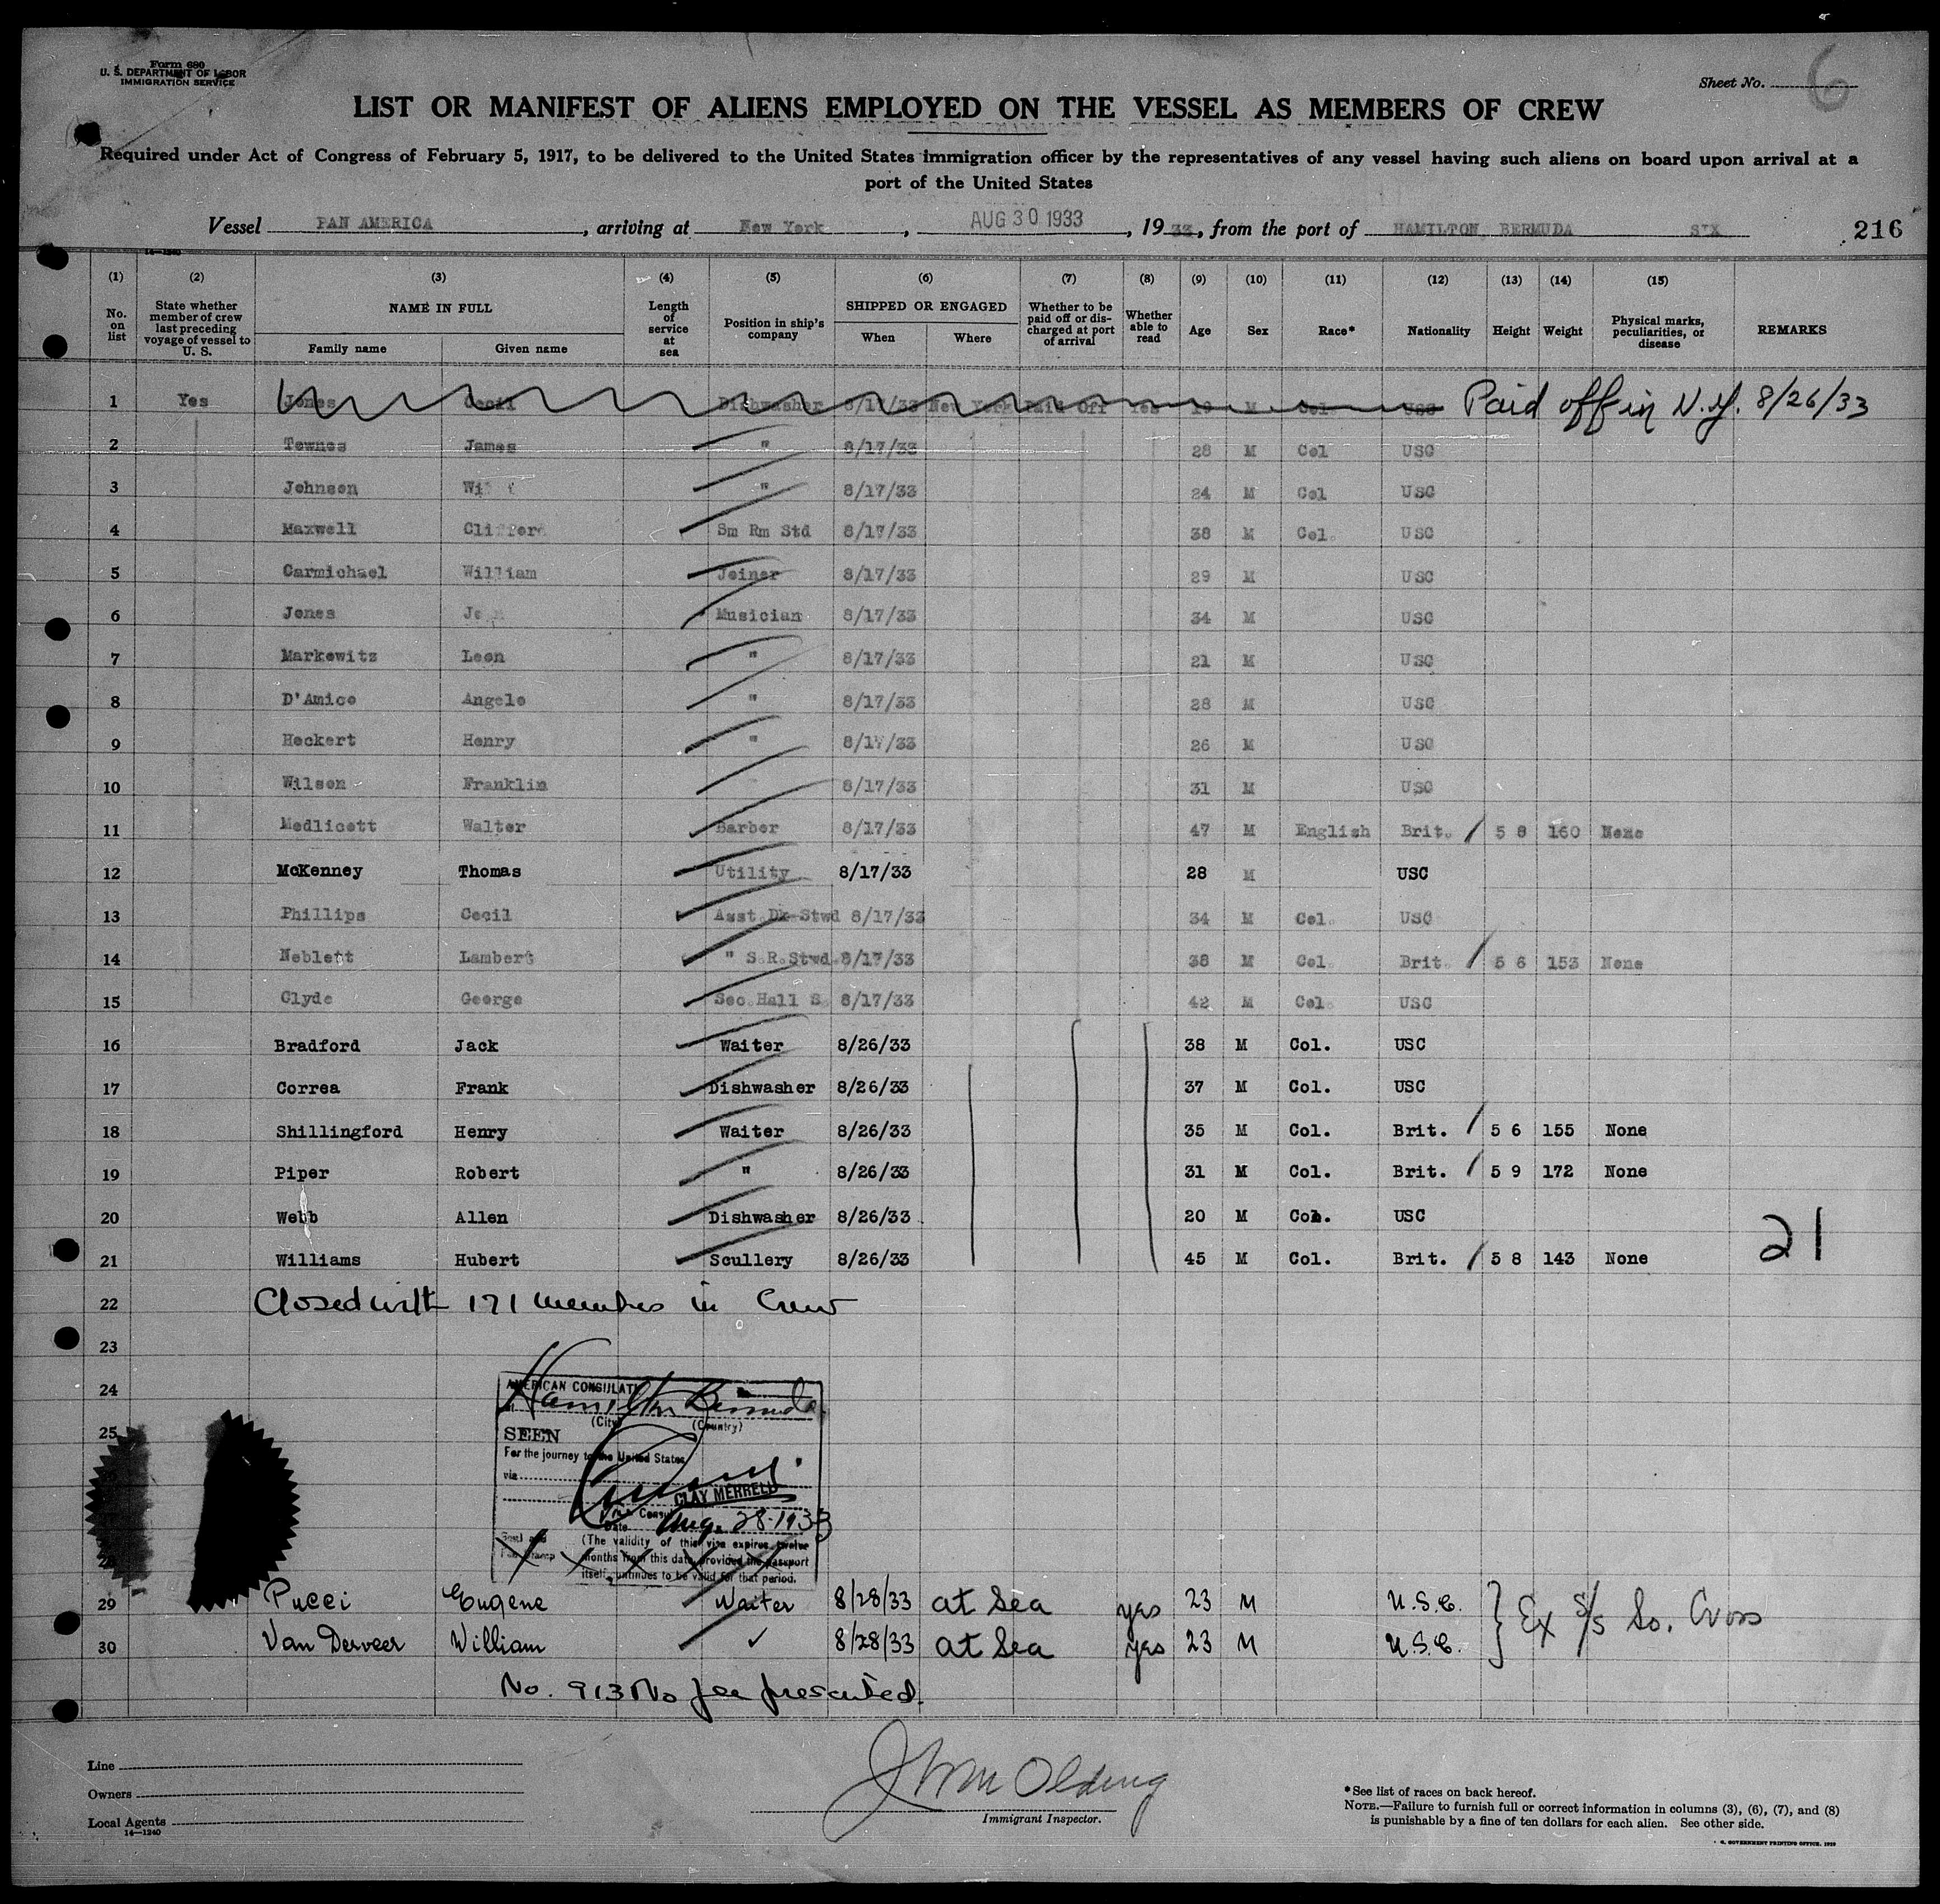 Form 680
U. S. DEPARTMENT OF LABOR
IMMIGRATION SERVICE
Sheet No. 6
LIST OR MANIFEST OF ALIENS EMPLOYED ON THE VESSEL AS MEMBERS OF CREW
Required under Act of Congress of February 5, 1917, to be delivered to the United States immigration officer by the representatives of any vessel having such aliens on board upon arrival at a
port of the United States
Vessel PAN AMERICA, arriving at New York, AUG 30 1933, 1933, from the port of HAMILTON, BERMUDA SIX 216
14-1240
(1) (2) (3) (4) (5) (6) (7) (8) (9) (10) (11) (12) (13) (14) (15)
No. on list State whether member of crew last preceding voyage of vessel to U. S. NAME IN FULL Family name Given name Length of service at sea Position in ship's company SHIPPED OR ENGAGED When Where Whether to be paid off or discharged at port of arrival Whether able to read Age Sex Race* Nationality Height Weight Physical marks, peculiarities, or disease REMARKS
1 Yes Jones Cecil Dishwasher 8/17/33 New York Paid Off Yes 19 M Col USC Paid off in N.Y. 8/26/33
2 Townes James " 8/17/33 28 M Col USC
3 Johnson 8/17/33 24 M Col USC
4 Maxwell Clifford Sm Rm Std 8/17/33 38 M Col. USC
5 Carmichael William Joiner 8/17/33 29 M USC
6 Jones Musician 8/17/33 34 M USC
7 Markowitz Leon " 8/17/33 21 M USC
8 D'Amico Angelo " 8/17/33 28 M USC
9 Heckert Henry " 8/17/33 26 M USC
10 Wilson Franklin " 8/17/33 31 M USC
11 Medlicott Walter Barber 8/17/33 47 M English Brit. / 5 8 160 None
12 McKenney Thomas Utility 8/17/33 28 M USC
13 Phillips Cecil Asst Dk Stwd 8/17/33 34 M Col. USC
14 Neblett Lambert " S.R. Stwd. 8/17/33 38 M Col. Brit. / 5 6 153 None
15 Clyde George Sec. Hall S. 8/17/33 42 M Col. USC
16 Bradford Jack Waiter 8/26/33 38 M Col. USC
17 Correa Frank Dishwasher 8/26/33 37 M Col. USC
18 Shillingford Henry Waiter 8/26/33 35 M Col. Brit. / 5 6 155 None
19 Piper Robert " 8/26/33 31 M Col. Brit. / 5 9 172 None
20 Webb Allen Dishwasher 8/26/33 20 M Col. USC
21 Williams Hubert Scullery 8/26/33 45 M Col. Brit. / 5 8 143 None
21
22 Closed with 171 members in Crew
23
24
AMERICAN CONSULATE
at Hamilton Bermuda
(City) (Country)
25
SEEN
For the journey to the United States
via
CLAY MERRELL
Vice Consul
Date Aug. 28-1933
(The validity of this visa expires twelve
months from this date, provided the passport
itself continues to be valid for that period.
29 Pucci Eugene Waiter 8/28/33 at Sea yes 23 M U.S.C.
30 Van Derveer William ✓ 8/28/33 at Sea yes 23 M U.S.C.
} Ex S/S So. Cross
No. 913 No fee presented.
Line
Owners
Local Agents
14-1240
Immigrant Inspector.
*See list of races on back hereof.
NOTE.—Failure to furnish full or correct information in columns (3), (6), (7), and (8)
is punishable by a fine of ten dollars for each alien. See other side.